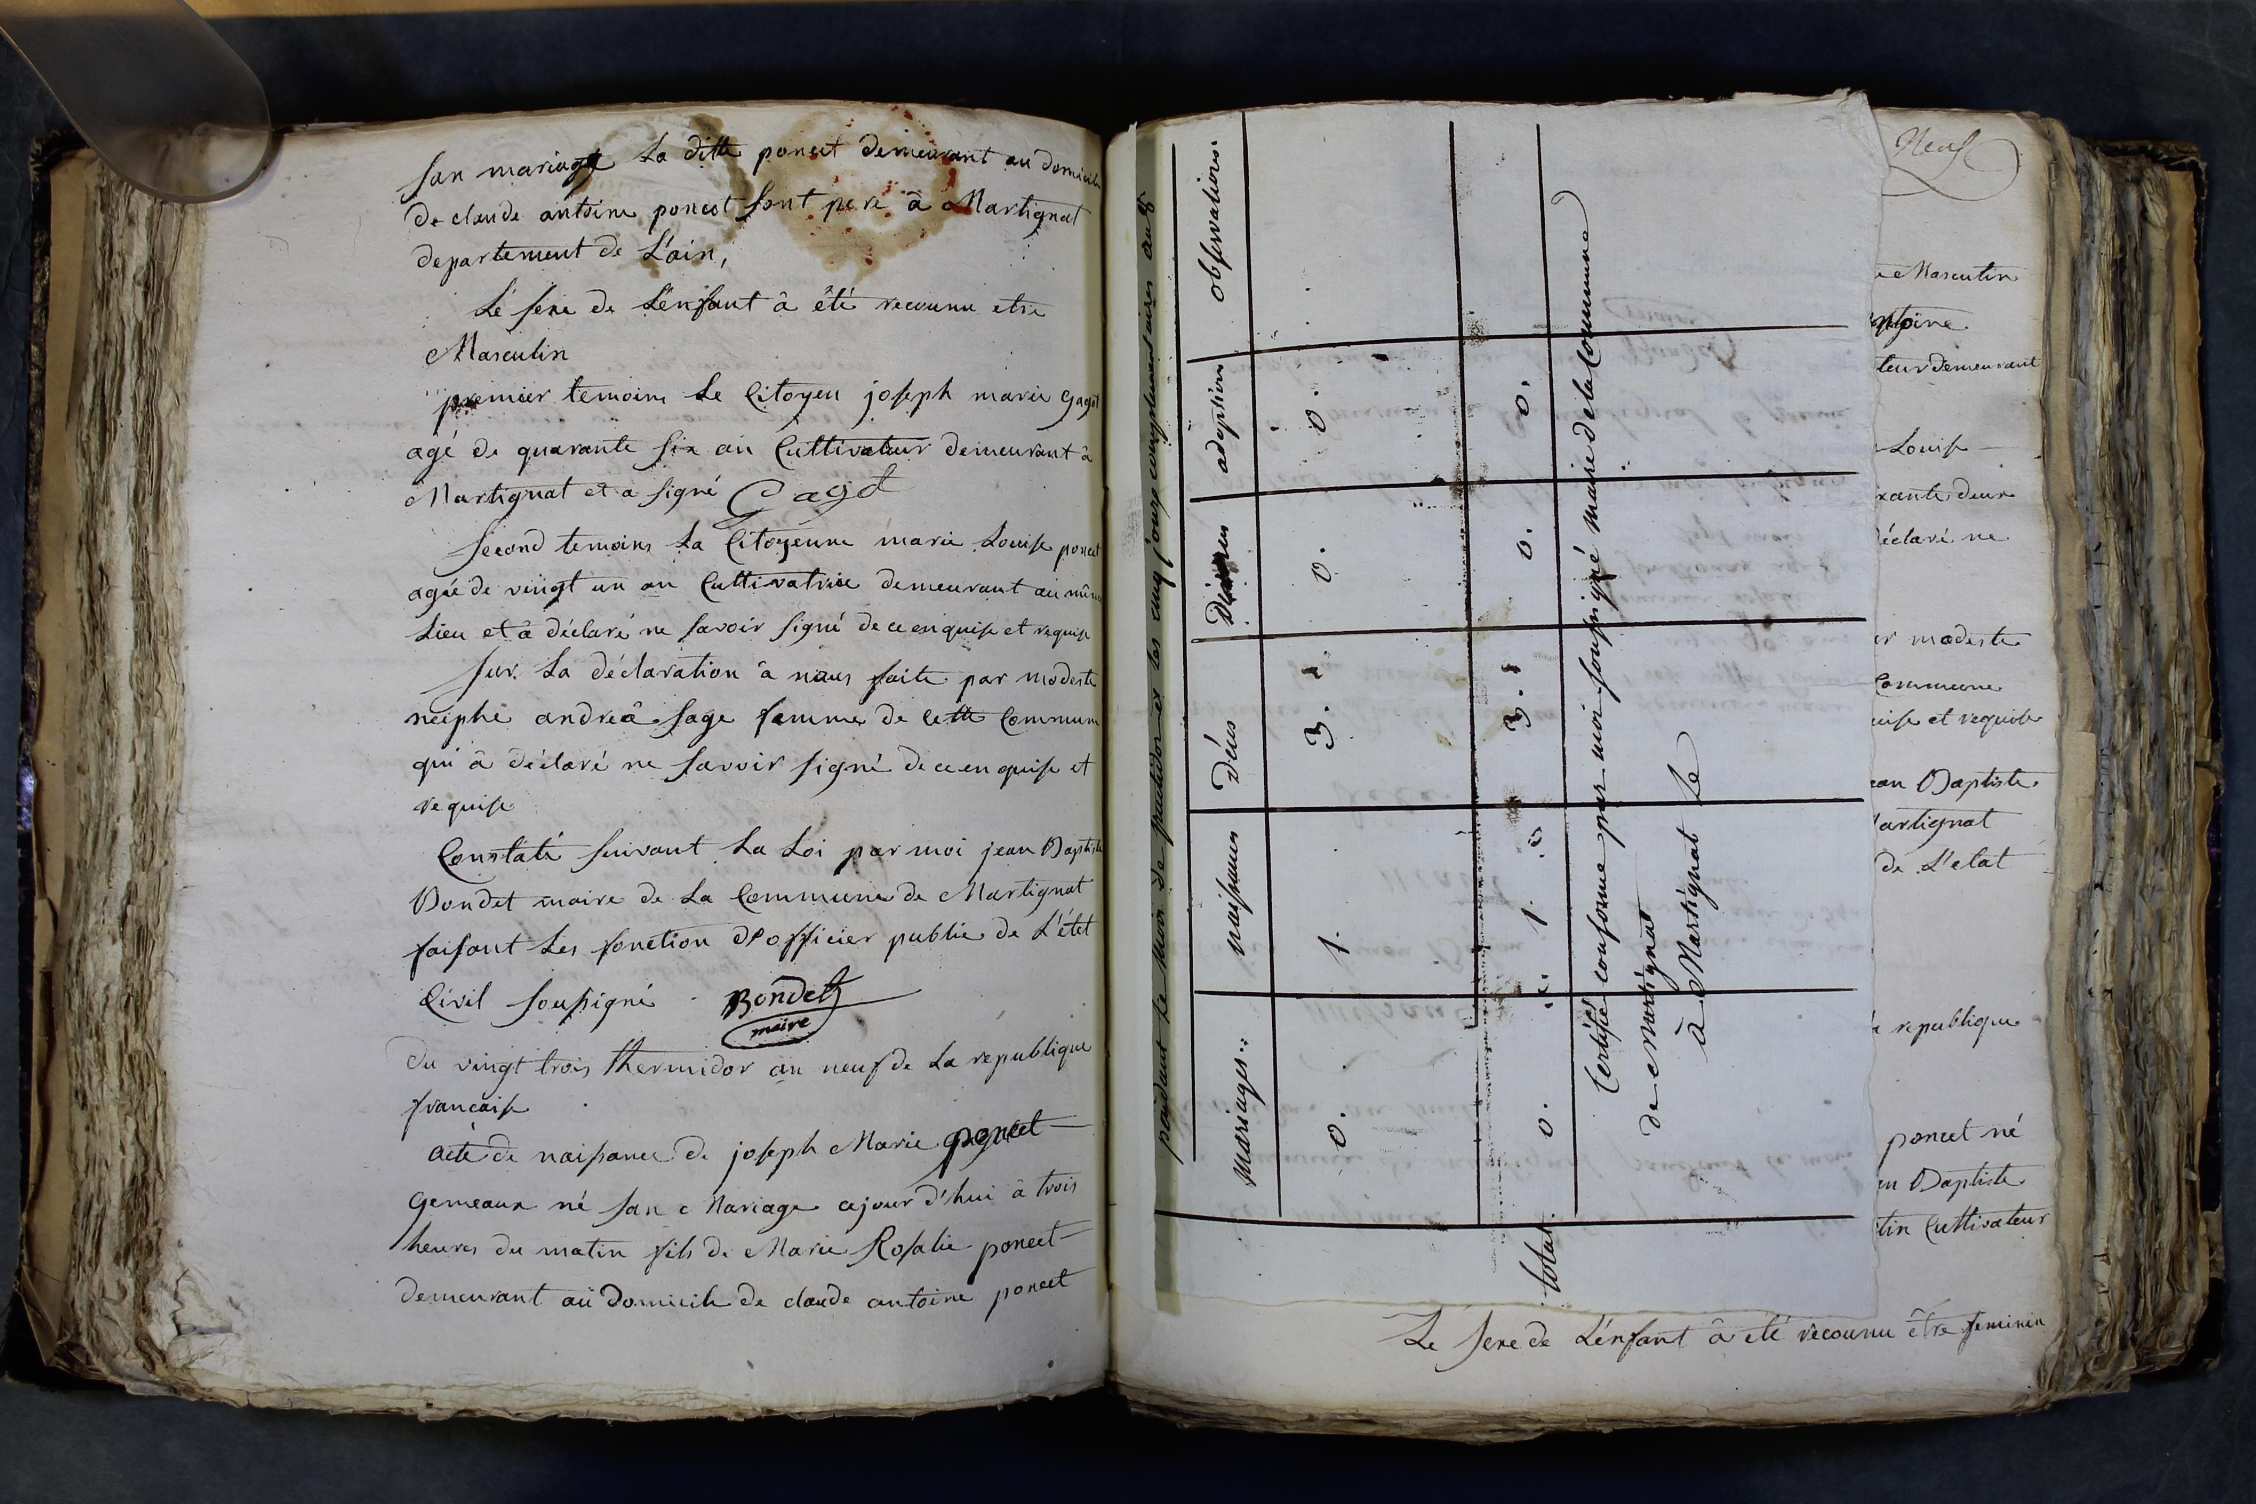 san mariage La ditte poncet demeurant au domicile
de claude antoine poncet sont pere â Martignat
departement de L'ain,
Lé sexe de L'enfant â êté reconnu etre
Masculin
premier temoins Le Citoyen joseph marie gagot
agé de quarante six an Cultivateur demeurant â
Martignat et a signé Gagot
Second temoins La Citoyenne marie Louise poncet
agée de vingt un an Cultivatrice demeurant au mûme
Lieu et â déclaré ne savoir signé de ce enquise et requise
Sur La déclaration â nous faite par modeste
neiphe andreâ sage femme de Cette Commune
qui â déclaré ne savoir signé de ce en quise et
requise
Constaté suivant La Loi par moi jean Baptiste
Bondet maire de La Commune de Martignat
faisant Les fonction d'officier public de L'étet
Civil soussigné Bondet
maire
du vingt trois thermidor an neuf de La republique
francaise
acte de naissance de joseph Marie poncet
gemeaux né san Mariage cejour d'hui â trois
heures du matin fils de Marie Rosalie poncet
demeurant aü domicile de claude antoine poncet
pendant le mois de fructidor et les cinq jours complementaires an 8
mariages naissances déces divorces adoptions observations.
0. 1. 3. 0. 0.
total 0. 1. 3. 0. 0.
Certifié conforme par moi soussigné maire de la Commune
de Martignat
â Martignat Le
Neuf
Masculin
antoine
teur demeurant
Louise
rante deux
déclaré ne
modeste
Commune
uise et requise
ean Baptiste
artignat
de L'etat
republique
poncet né
en Baptiste
tin Cultivateur
Le sexe de L'énfant â eté reconnu être feminin